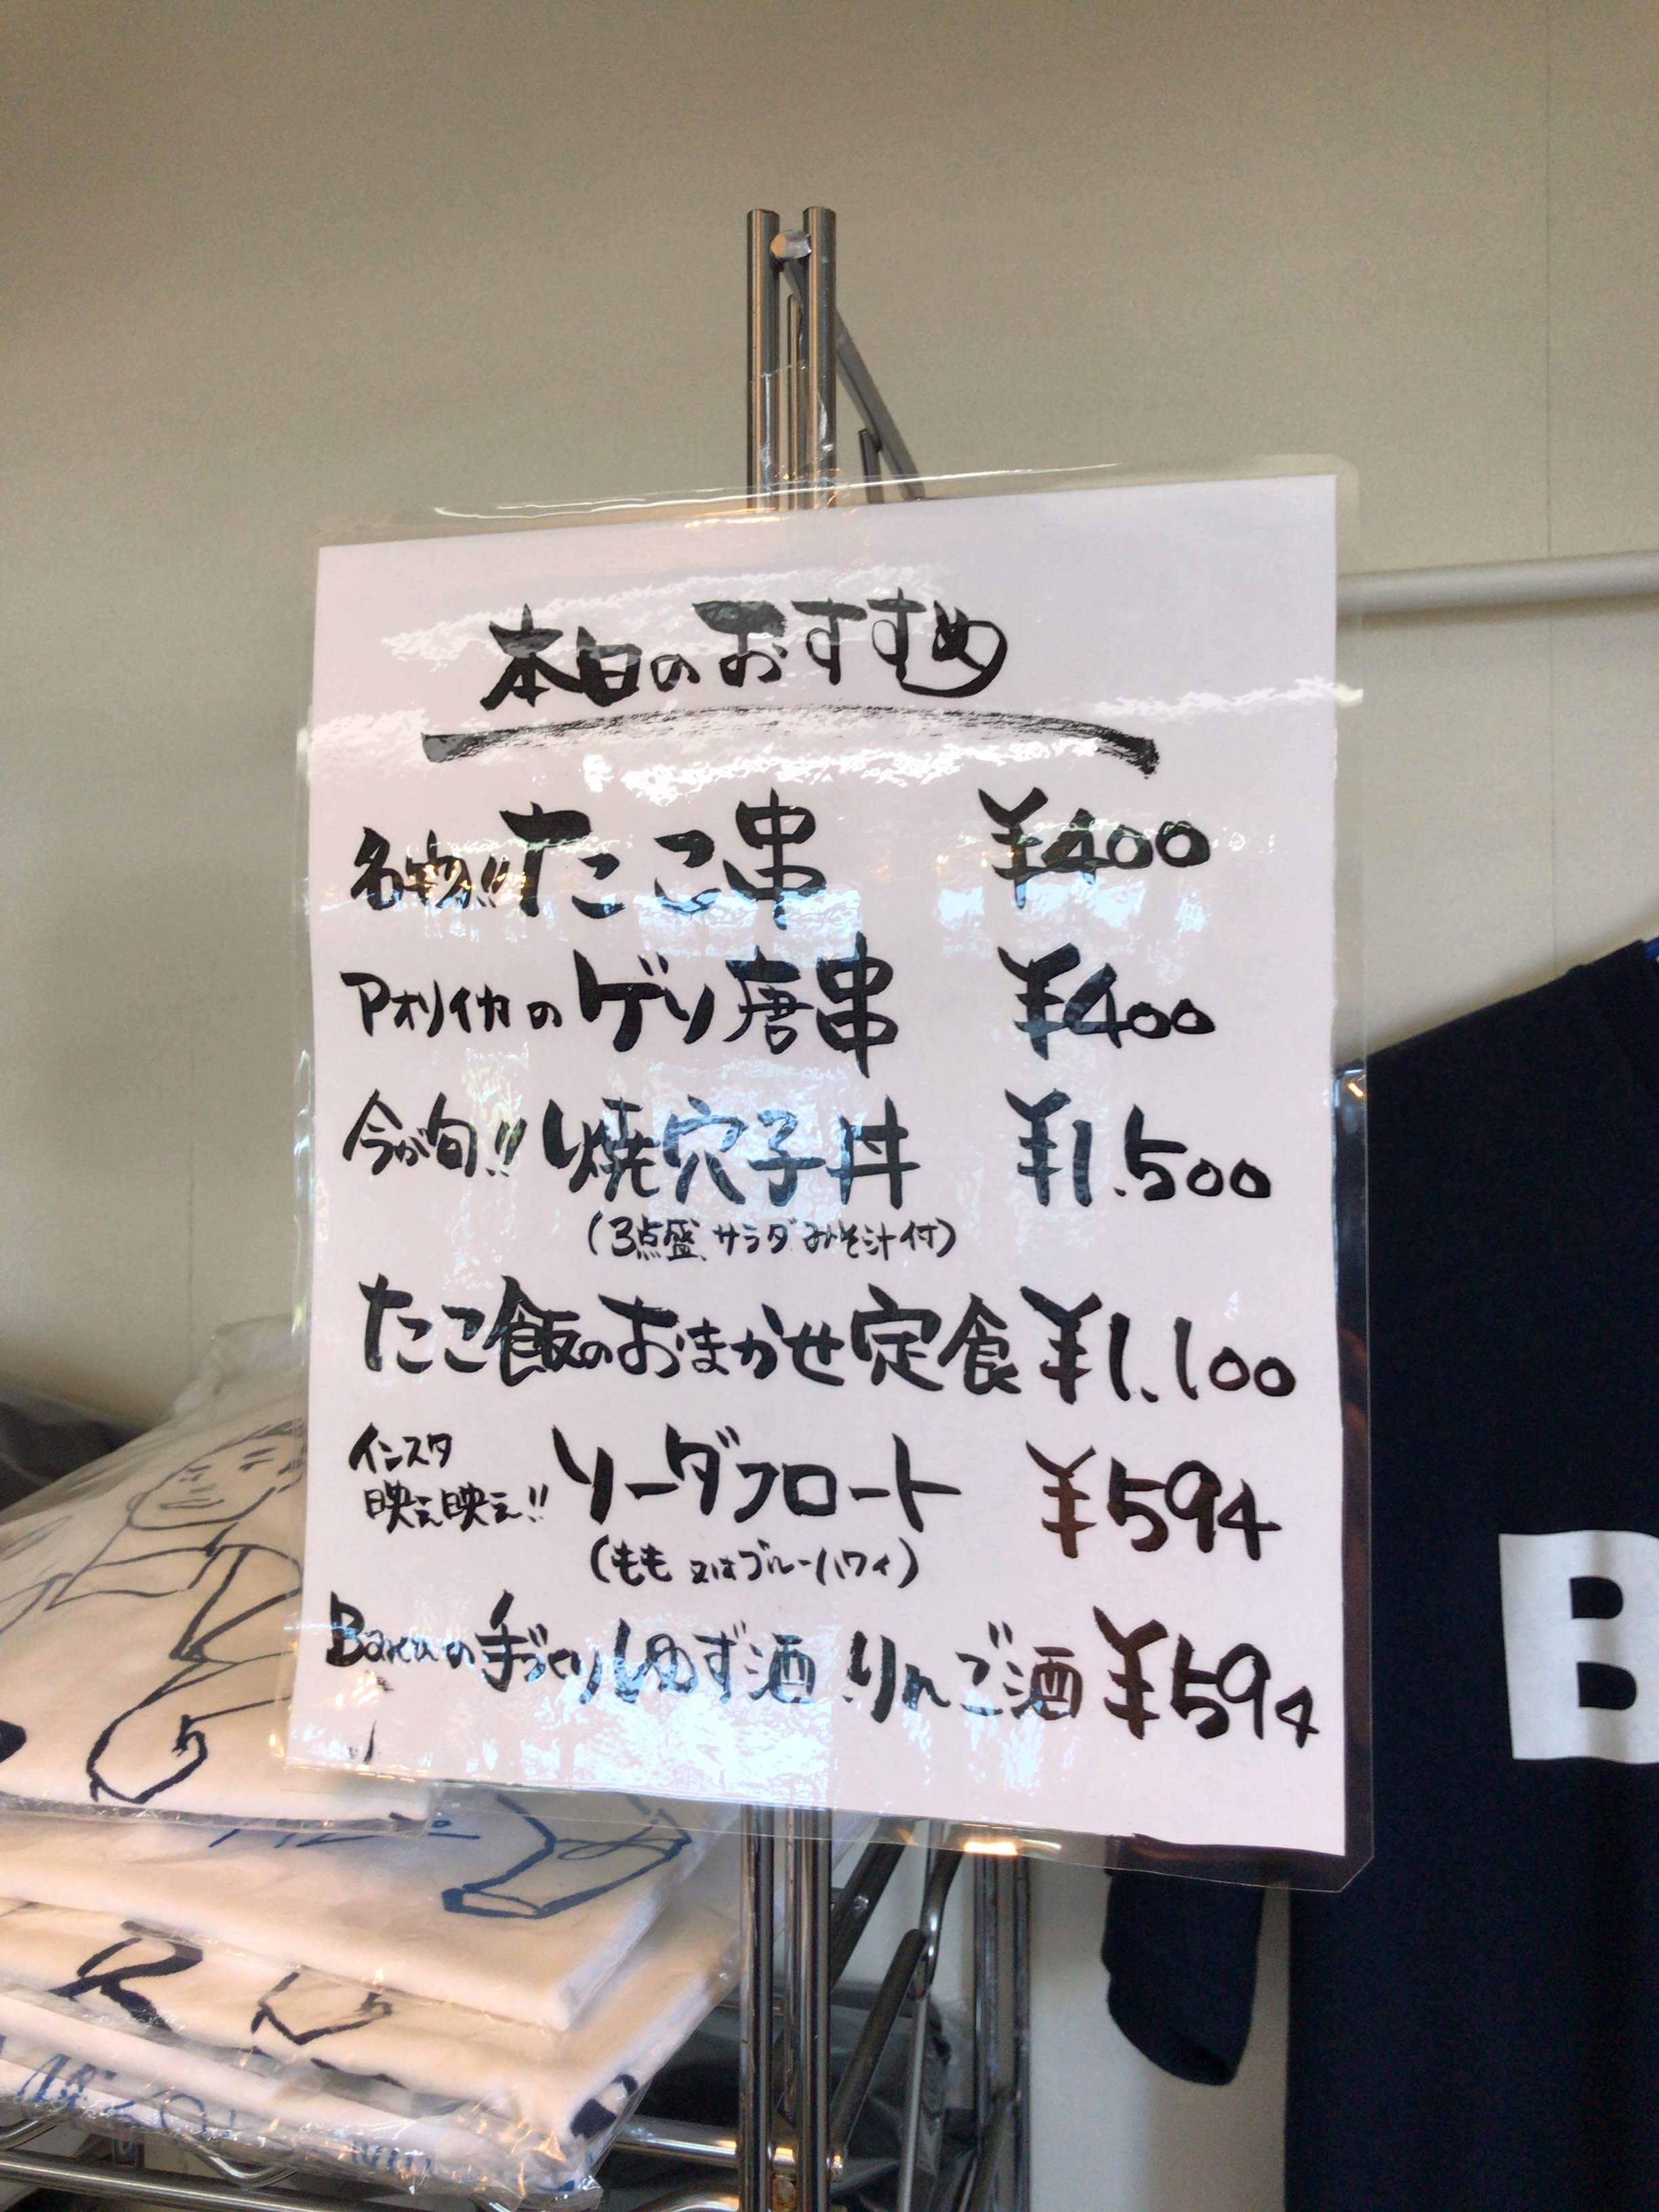 本日のおすすめ
名物!!たこ串 ¥400
アオリイカのゲソ唐串 ¥400
今が旬!! 焼穴子丼 ¥1.500
(3点盛、サラダ みそ汁付)
たこ飯のおまかせ定食 ¥1.100
インスタ
映え映え!! ソーダフロート ¥594
(もも 又はブルーハワイ)
の手づくりゆず酒 りんご酒 ¥594
B